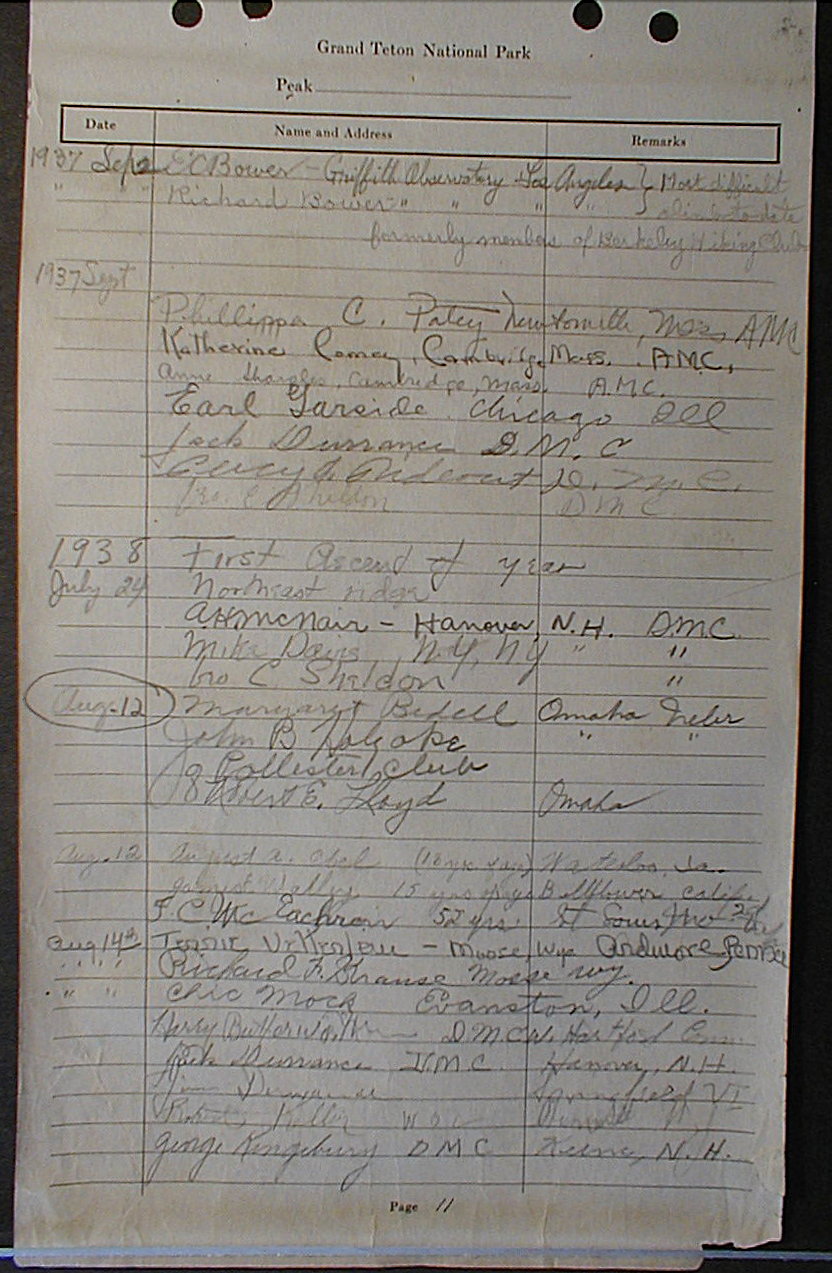 Grand Teton National Park
Peak
Date Name and Address Remarks
1937 Sep 2 E C Bower - Griffith Observatory Los Angeles } Most difficult
" " Richard Bower " " " " climb to date
formerly members of Berkeley Hiking Club
1937 Sept
Phillippa C. Patey Newtonville, Mass, AMC
Katherine Cambridge, Mass. AMC,
Anne Cambridge, Mass. A.M.C.
Earl Garside Chicago Ill
Jack Durrance D.M.C
D.M.C.
Geo. C Sheldon DMC
1938 First Ascend of year
July 24 Northeast ridge
A H McNair - Hanover, N.H. DMC
Mike Davis N.Y, NY " "
Geo C. Sheldon "
Aug. 12 Margaret Bedell Omaha Nebr
John B Holyoke " "
Club
Robert E. Lloyd Omaha
Aug. 12 August A. (18 yrs Waterloo, Ia.
15 yrs Bellflower Calif
F. C. McEachron 52 yrs St Louis Mo
Aug 14th - Moose, Wyo Ardmore
" " Richard F. Strause Moose Wy.
" " Chic Mock Evanston, Ill.
Harry Butterworth DMC W. Hartford Conn.
Jack Durrance D.M.C. Hanover, N.H.
Springfield VT
George Kingsbury DMC Keene, N.H.
Page 11